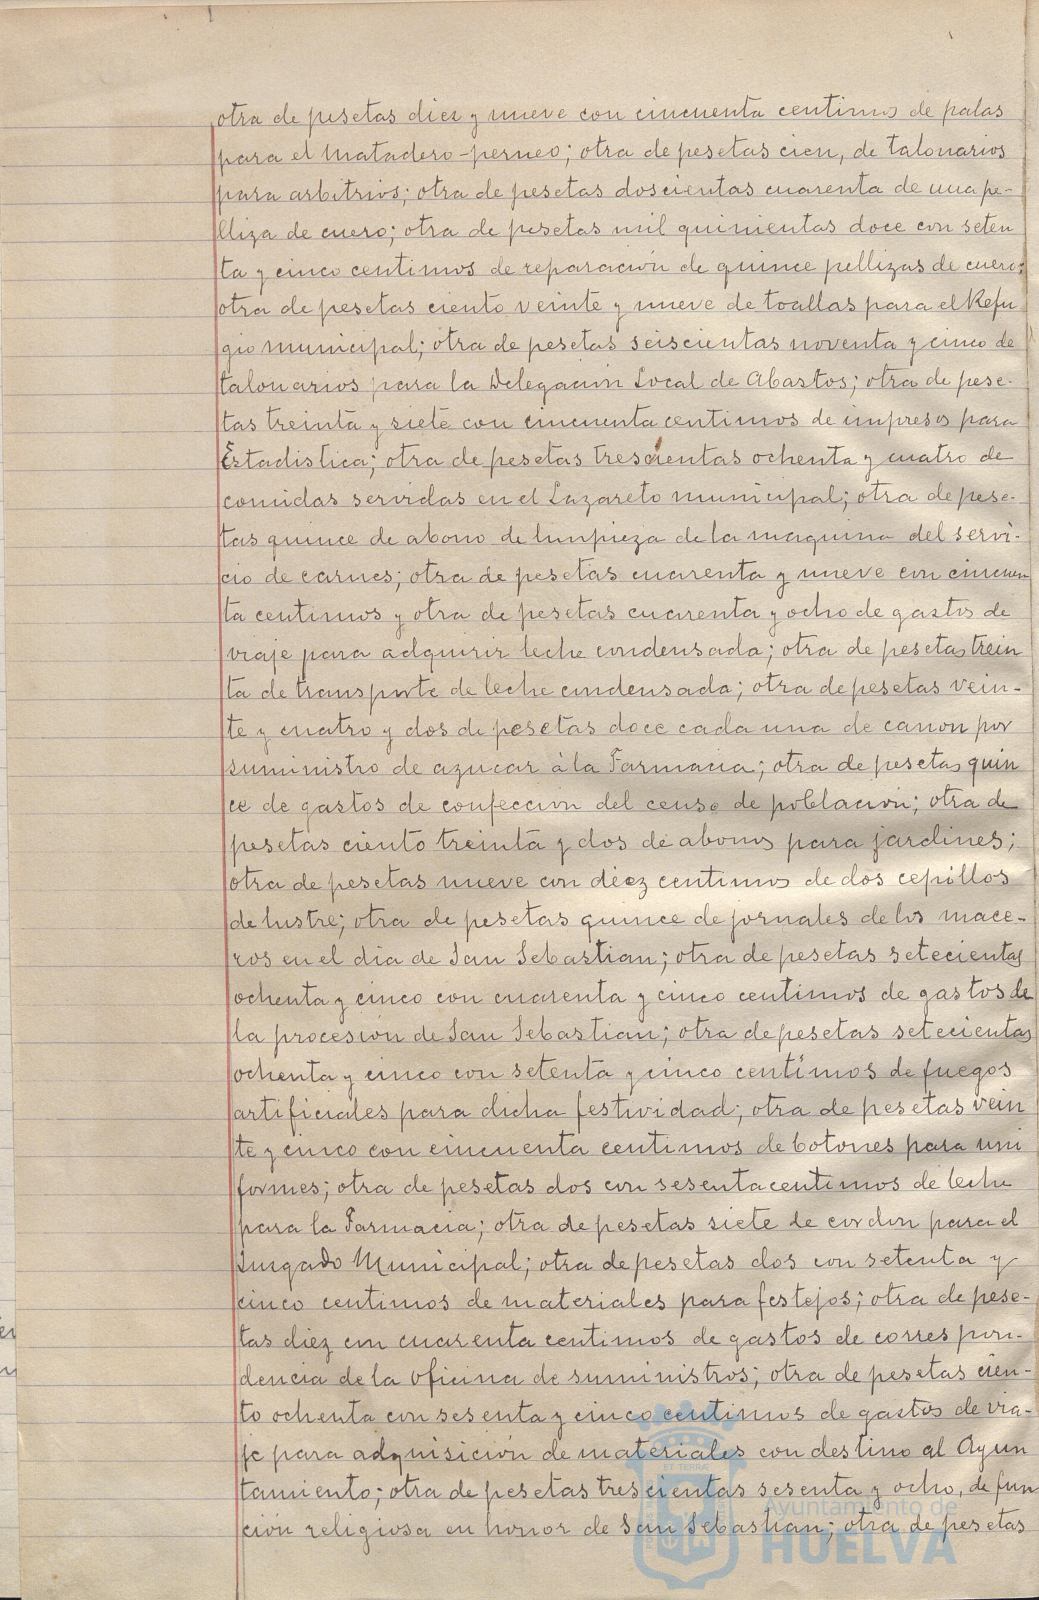 otra de pesetas diez y nueve con cincuenta centimos de palas
para el Matadero-perneo; otra de pesetas cien, de talonarios
para arbitrios; otra de pesetas doscientas cuarenta de una pe-
lliza de cuero; otra de pesetas mil quinientas doce con seten
ta y cinco centimos de reparación de quince pellizas de cuero;
otra de pesetas ciento veinte y nueve de toallas para el Refu
gio municipal; otra de pesetas seiscientas noventa y cinco de
talonarios para la Delegación Local de Abastos; otra de pese-
tas treinta y siete con cincuenta centimos de impresos para
Estadistica; otra de pesetas trescientas ochenta y cuatro de
comidas servidas en el Lazareto municipal; otra de pese-
tas quince de abono de limpieza de la maquina del servi-
cio de carnes; otra de pesetas cuarenta y nueve con cincuen
ta centimos y otra de pesetas cuarenta y ocho de gastos de
viaje para adquirir leche condensada; otra de pesetas trein
ta de transporte de leche condensada; otra de pesetas vein-
te y cuatro y dos de pesetas doce cada una de canon por
suministro de azucar à la Farmacia; otra de pesetas quin
ce de gastos de confección del censo de población; otra de
pesetas ciento treinta y dos de abonos para jardines;
otra de pesetas nueve con diez centimos de dos cepillos
de lustre; otra de pesetas quince de jornales de los mace-
ros en el dia de San Sebastian; otra de pesetas setecientas
ochenta y cinco con cuarenta y cinco centimos de gastos de
la procesión de San Sebastian; otra de pesetas setecientas
ochenta y cinco con setenta y cinco centimos de fuegos
artificiales para dicha festividad; otra de pesetas vein
te y cinco con cincuenta centimos de botones para uni
formes; otra de pesetas dos con sesenta centimos de leche
para la Farmacia; otra de pesetas siete de cordon para el
Juzgado Municipal; otra de pesetas dos con setenta y
cinco centimos de materiales para festejos; otra de pese-
tas diez con cuarenta centimos de gastos de correspon-
dencia de la oficina de suministros; otra de pesetas cien-
to ochenta con sesenta y cinco centimos de gastos de via-
je para adquisición de materiales con destino al Ayun
tamiento; otra de pesetas trescientas sesenta y ocho, de fun
ción religiosa en honor de San Sebastian; otra de pesetas
Ayuntamiento de
HUELVA